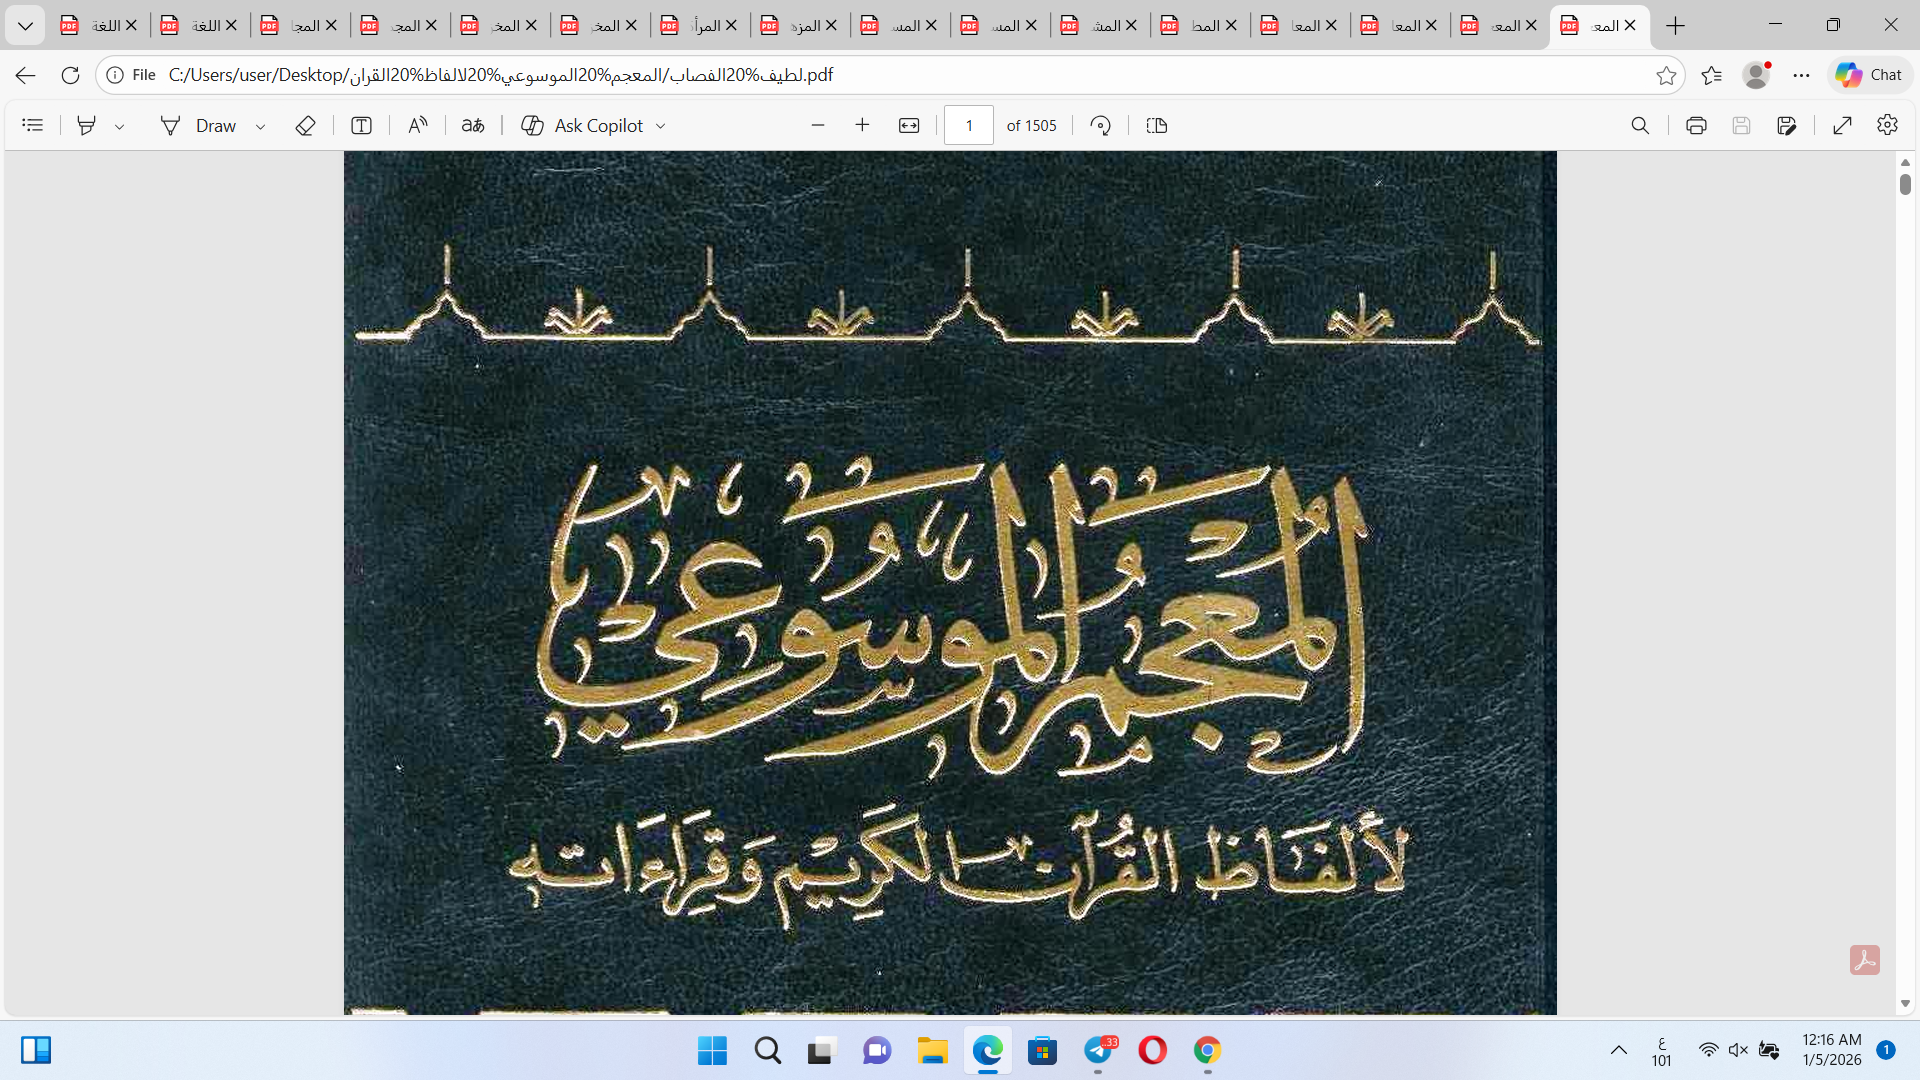 اللغة
اللغة
المجا
المجد
المخر
المخر
المرأة
المزه
المس
المس
المش
المط
المعا
المعا
المعج
المعج
File C:/Users/user/Desktop/لطيف%20القصاب/المعجم%20الموسوعي%20لالفاظ%20القران.pdf
Chat
Draw
Ask Copilot
1 of 1505
المُعْجَمُ المَوسُوعِيُّ
لأَلفَاظِ القُرآنِ الكَرِيمِ وَقِرَاءَاتِهِ
33
ع
101
12:16 AM
1/5/2026
1